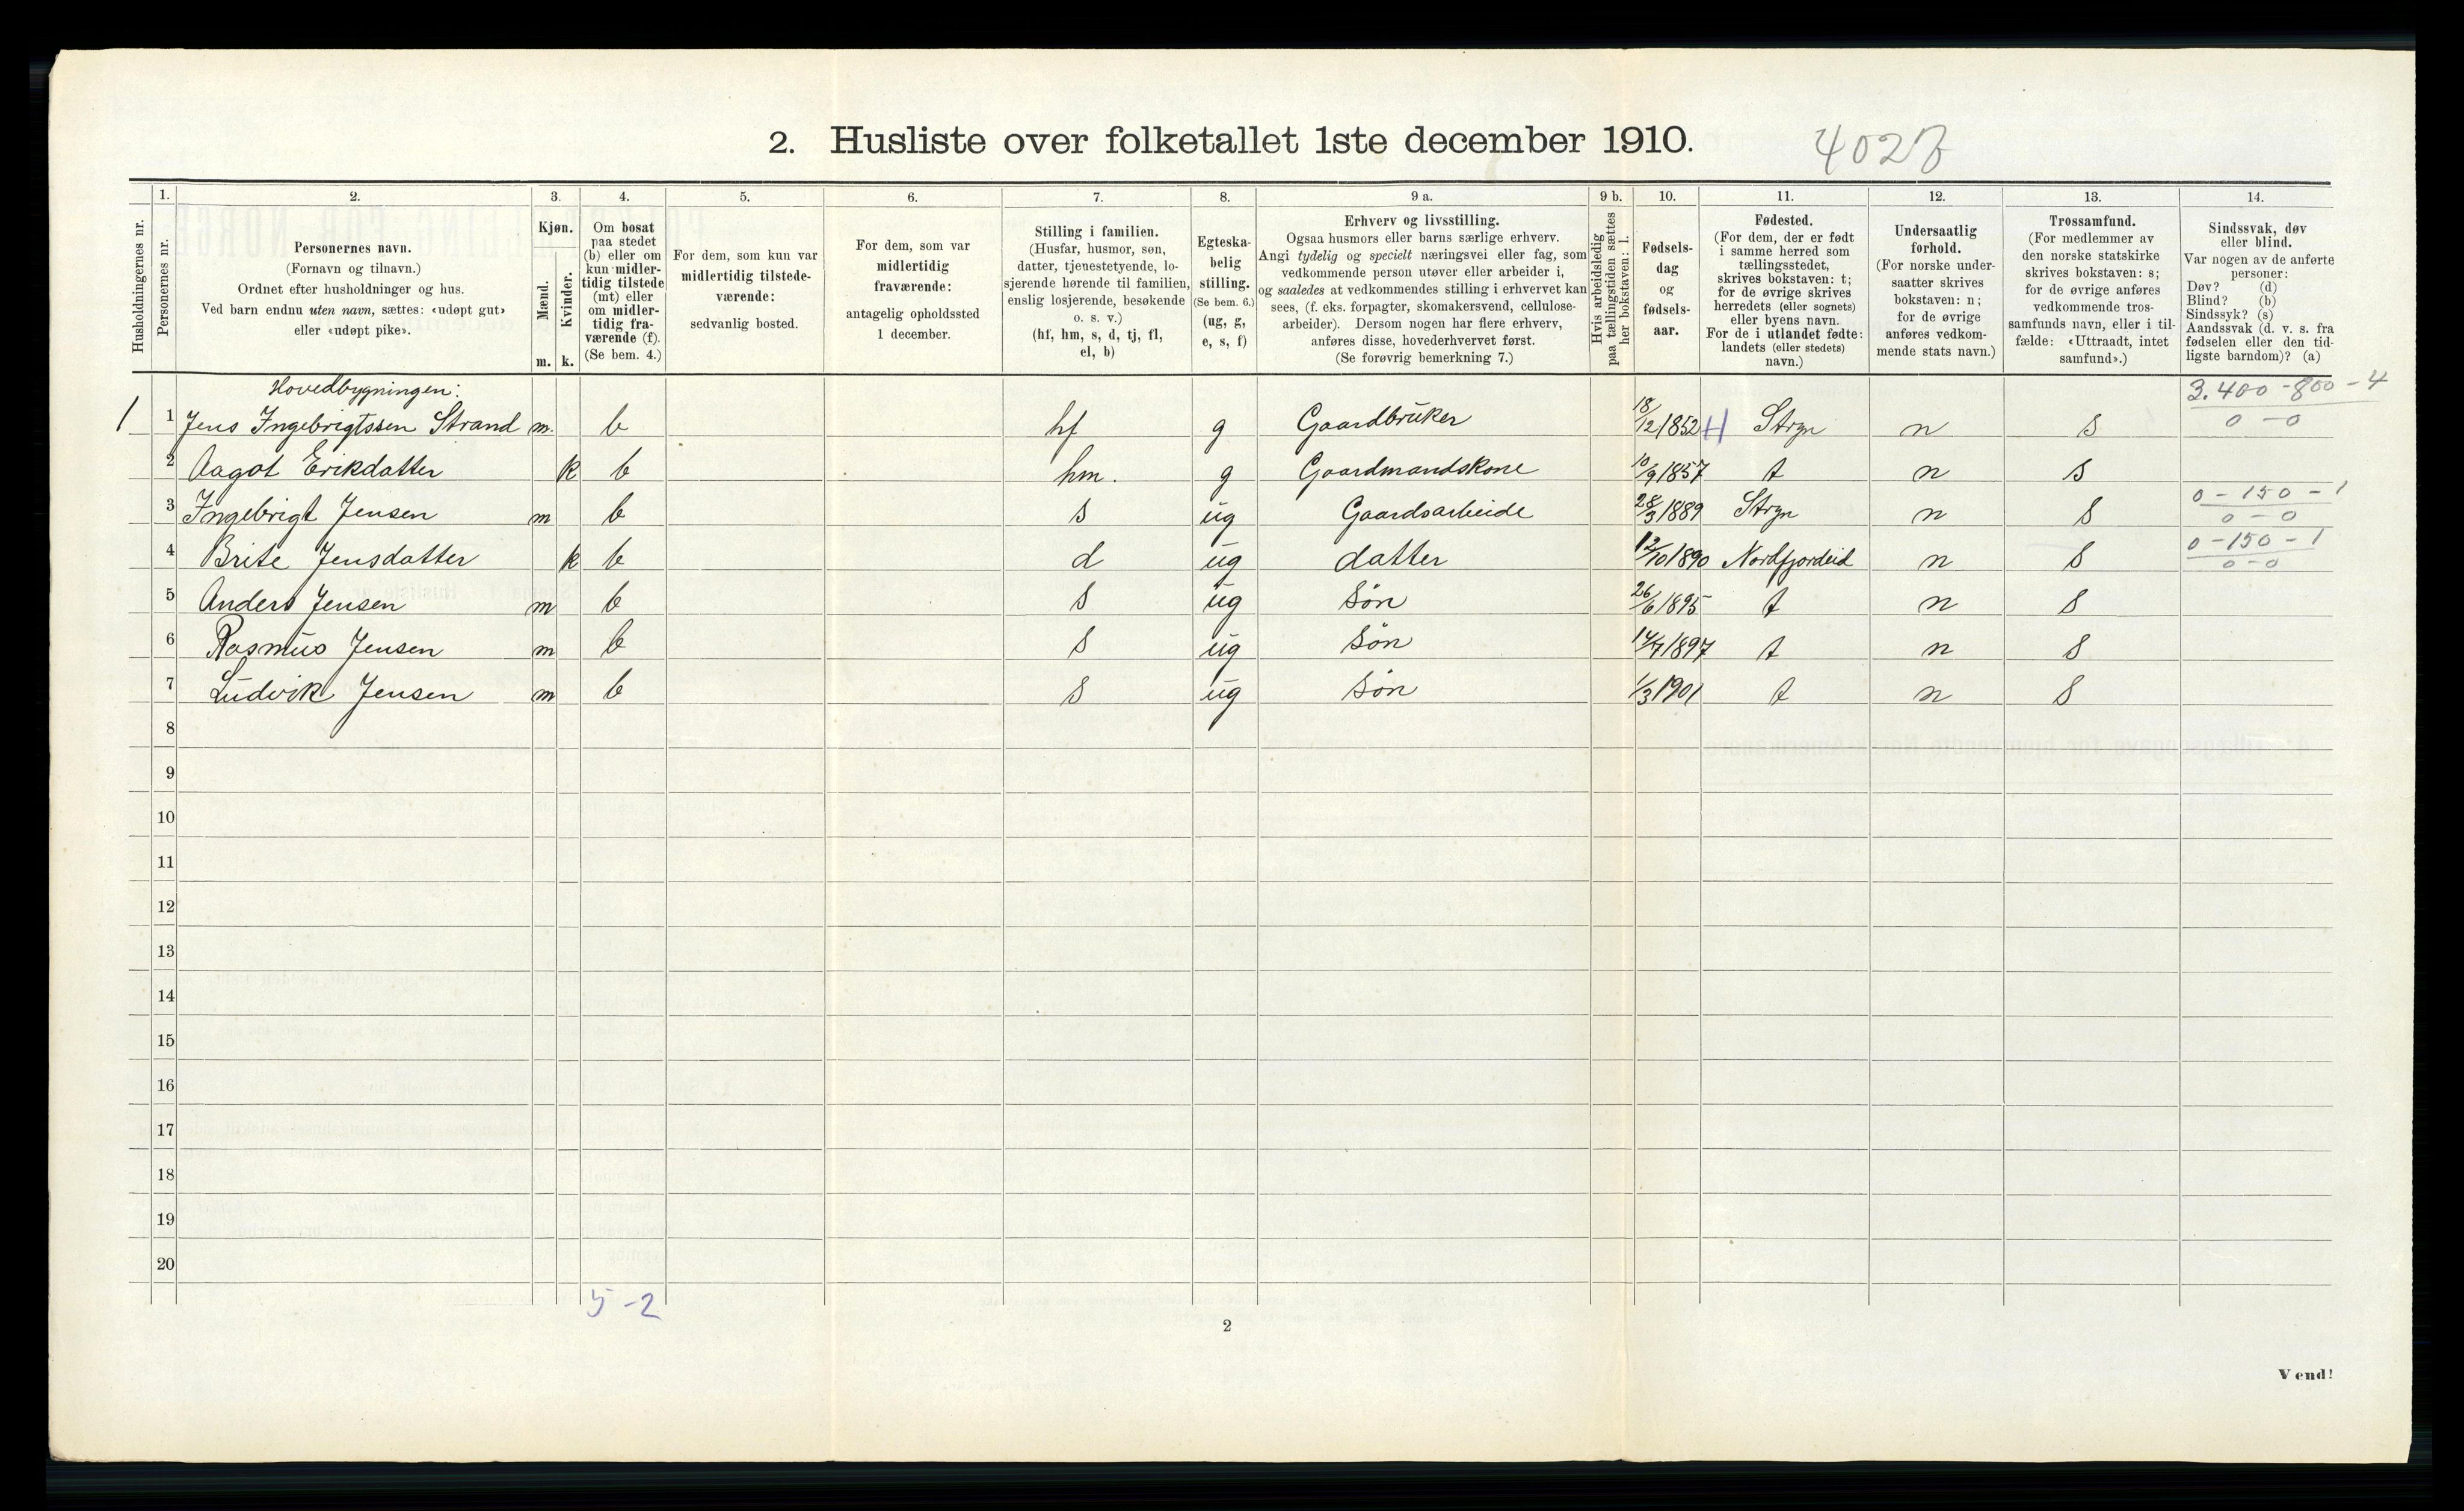 2. Husliste over folketallet 1ste december 1910.
1. 2. 3. 4. 5. 6. 7. 8. 9 a. 9 b. 10. 11. 12. 13. 14.
Husholdningernes nr.
Personernes nr.
Personernes navn.
(Fornavn og tilnavn.)
Ordnet efter husholdninger og hus.
Ved barn endnu uten navn, sættes: «udøpt gut»
eller «udøpt pike».
Kjøn.
Mænd.
Kvinder.
m. k.
Om bosat
paa stedet
(b) eller om
kun midler-
tidig tilstede
(mt) eller
om midler-
tidig fra-
værende (f).
(Se bem. 4.)
For dem, som kun var
midlertidig tilstede-
værende:
sedvanlig bosted.
For dem, som var
midlertidig
fraværende:
antagelig opholdssted
1 december.
Stilling i familien.
(Husfar, husmor, søn,
datter, tjenestetyende, lo-
sjerende hørende til familien,
enslig losjerende, besøkende
o. s. v.)
(hf, hm, s, d, tj, fl,
el, b)
Egteska-
belig
stilling.
(Se bem. 6.)
(ug, g,
e, s, f)
Erhverv og livsstilling.
Ogsaa husmors eller barns særlige erhverv.
Angi tydelig og specielt næringsvei eller fag, som
vedkommende person utøver eller arbeider i,
og saaledes at vedkommendes stilling i erhvervet kan
sees, (f. eks. forpagter, skomakersvend, cellulose-
arbeider). Dersom nogen har flere erhverv,
anføres disse, hovederhvervet først.
(Se forøvrig bemerkning 7.)
Hvis arbeidsledig
paa tællingstiden sættes
her bokstaven: l.
Fødsels-
dag
og
fødsels-
aar.
Fødested.
(For dem, der er født
i samme herred som
tællingsstedet,
skrives bokstaven: t;
for de øvrige skrives
herredets (eller sognets)
eller byens navn.
For de i utlandet fødte:
landets (eller stedets)
navn.)
Undersaatlig
forhold.
(For norske under-
saatter skrives
bokstaven: n;
for de øvrige
anføres vedkom-
mende stats navn.)
Trossamfund.
(For medlemmer av
den norske statskirke
skrives bokstaven: s;
for de øvrige anføres
vedkommende tros-
samfunds navn, eller i til-
fælde: «Uttraadt, intet
samfund».)
Sindssvak, døv
eller blind.
Var nogen av de anførte
personer:
Døv? (d)
Blind? (b)
Sindssyk? (s)
Aandssvak (d. v. s. fra
fødselen eller den tid-
ligste barndom)? (a)
Hovedbygningen: 3.400 - 800 - 4
1 1 Jens Ingebrigtssen Strand m. b hf g Gaardbruker 18/12 1852 H Stryn n s 0 - 0
2 Aagot Erikdatter k b hm. g Gaardmandskone 10/9 1857 t n s
0 - 150 - 1
3 Ingebrigt Jensen m b s ug Gaardsarbeide 28/3 1889 Stryn n s 0 - 0
0 - 150 - 1
4 Brite Jensdatter k b d ug datter 12/10 1890 Nordfjordeid n s 0 - 0
5 Anders Jensen m b s ug søn 26/6 1895 t n s
6 Rasmus Jensen m b s ug søn 14/7 1897 t n s
7 Ludvik Jensen m b s ug søn 1/3 1901 t n s
8
9
10
11
12
13
14
15
16
17
18
19
20
5 - 2
2
Vend!